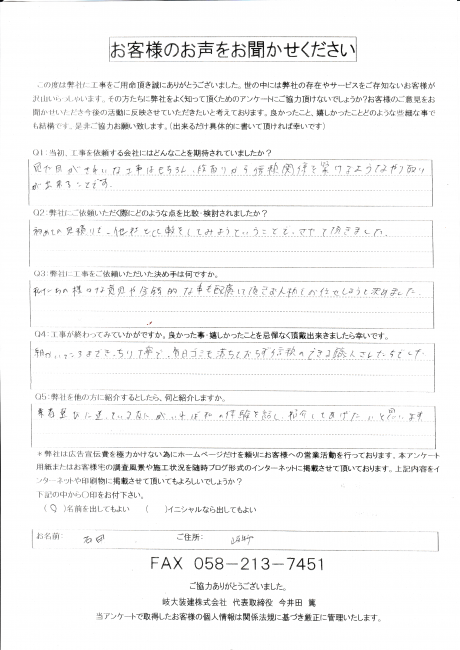 お客様のお声をお聞かせください
この度は弊社に工事をご用命頂き誠にありがとうございました。世の中には弊社の存在やサービスをご存知ないお客様が
沢山いらっしゃいます。その方たちに弊社をよく知って頂くためのアンケートにご協力頂けないでしょうか?お客様のご意見をお
聞かせいただき今後の活動に反映させていただきたいと考えております。良かったこと、嬉しかったことどのような些細な事で
も結構です、是非ご協力お願い致します。(出来るだけ具体的に書いて頂ければ幸いです)
Q1:当初、工事を依頼する会社にはどんなことを期待されていましたか?
見た目がきれいな工事はもちろん、段取りから信頼関係を築けるようなやり取り
が出来ることです。
Q2:弊社にご依頼いただく際にどのような点を比較・検討されましたか?
初めての見積りで、他社と比較をしてみようということで、させて頂きました。
Q3:弊社に工事をご依頼いただいた決め手は何ですか。
私たちの様々な意見や金額的な事も配慮して頂きお人柄でお任せしようと決めました。
Q4:工事が終わってみていかがですか。良かった事・嬉しかったことを忌憚なく頂戴出来きましたら幸いです。
細かいところまできっちり丁寧で、毎日ゴミも落ちておらず信頼のできる職人さんたちでした
Q5:弊社を他の方に紹介するとしたら、何と紹介しますか。
業者選びに迷っている友人がいれば私の体験を話し、紹介してあげたいと思います
*弊社は広告宣伝費を極力かけない為にホームページだけを頼りにお客様への営業活動を行っております。本アンケート
用紙またはお客様宅の調査風景や施工状況を随時ブログ形式のインターネットに掲載させて頂いております。上記内容をイ
ンターネットや印刷物に掲載させて頂いてもよろしいでしょうか?
下記の中から〇印をお付下さい。
(〇)名前を出してもよい (  )イニシャルなら出してもよい
お名前: 石田 ご住所:
FAX 058-213-7451
ご協力ありがとうございました。
岐大装建株式会社 代表取締役 今井田 篤
当アンケートで取得したお客様の個人情報は関係法規に基づき厳正に管理いたします。